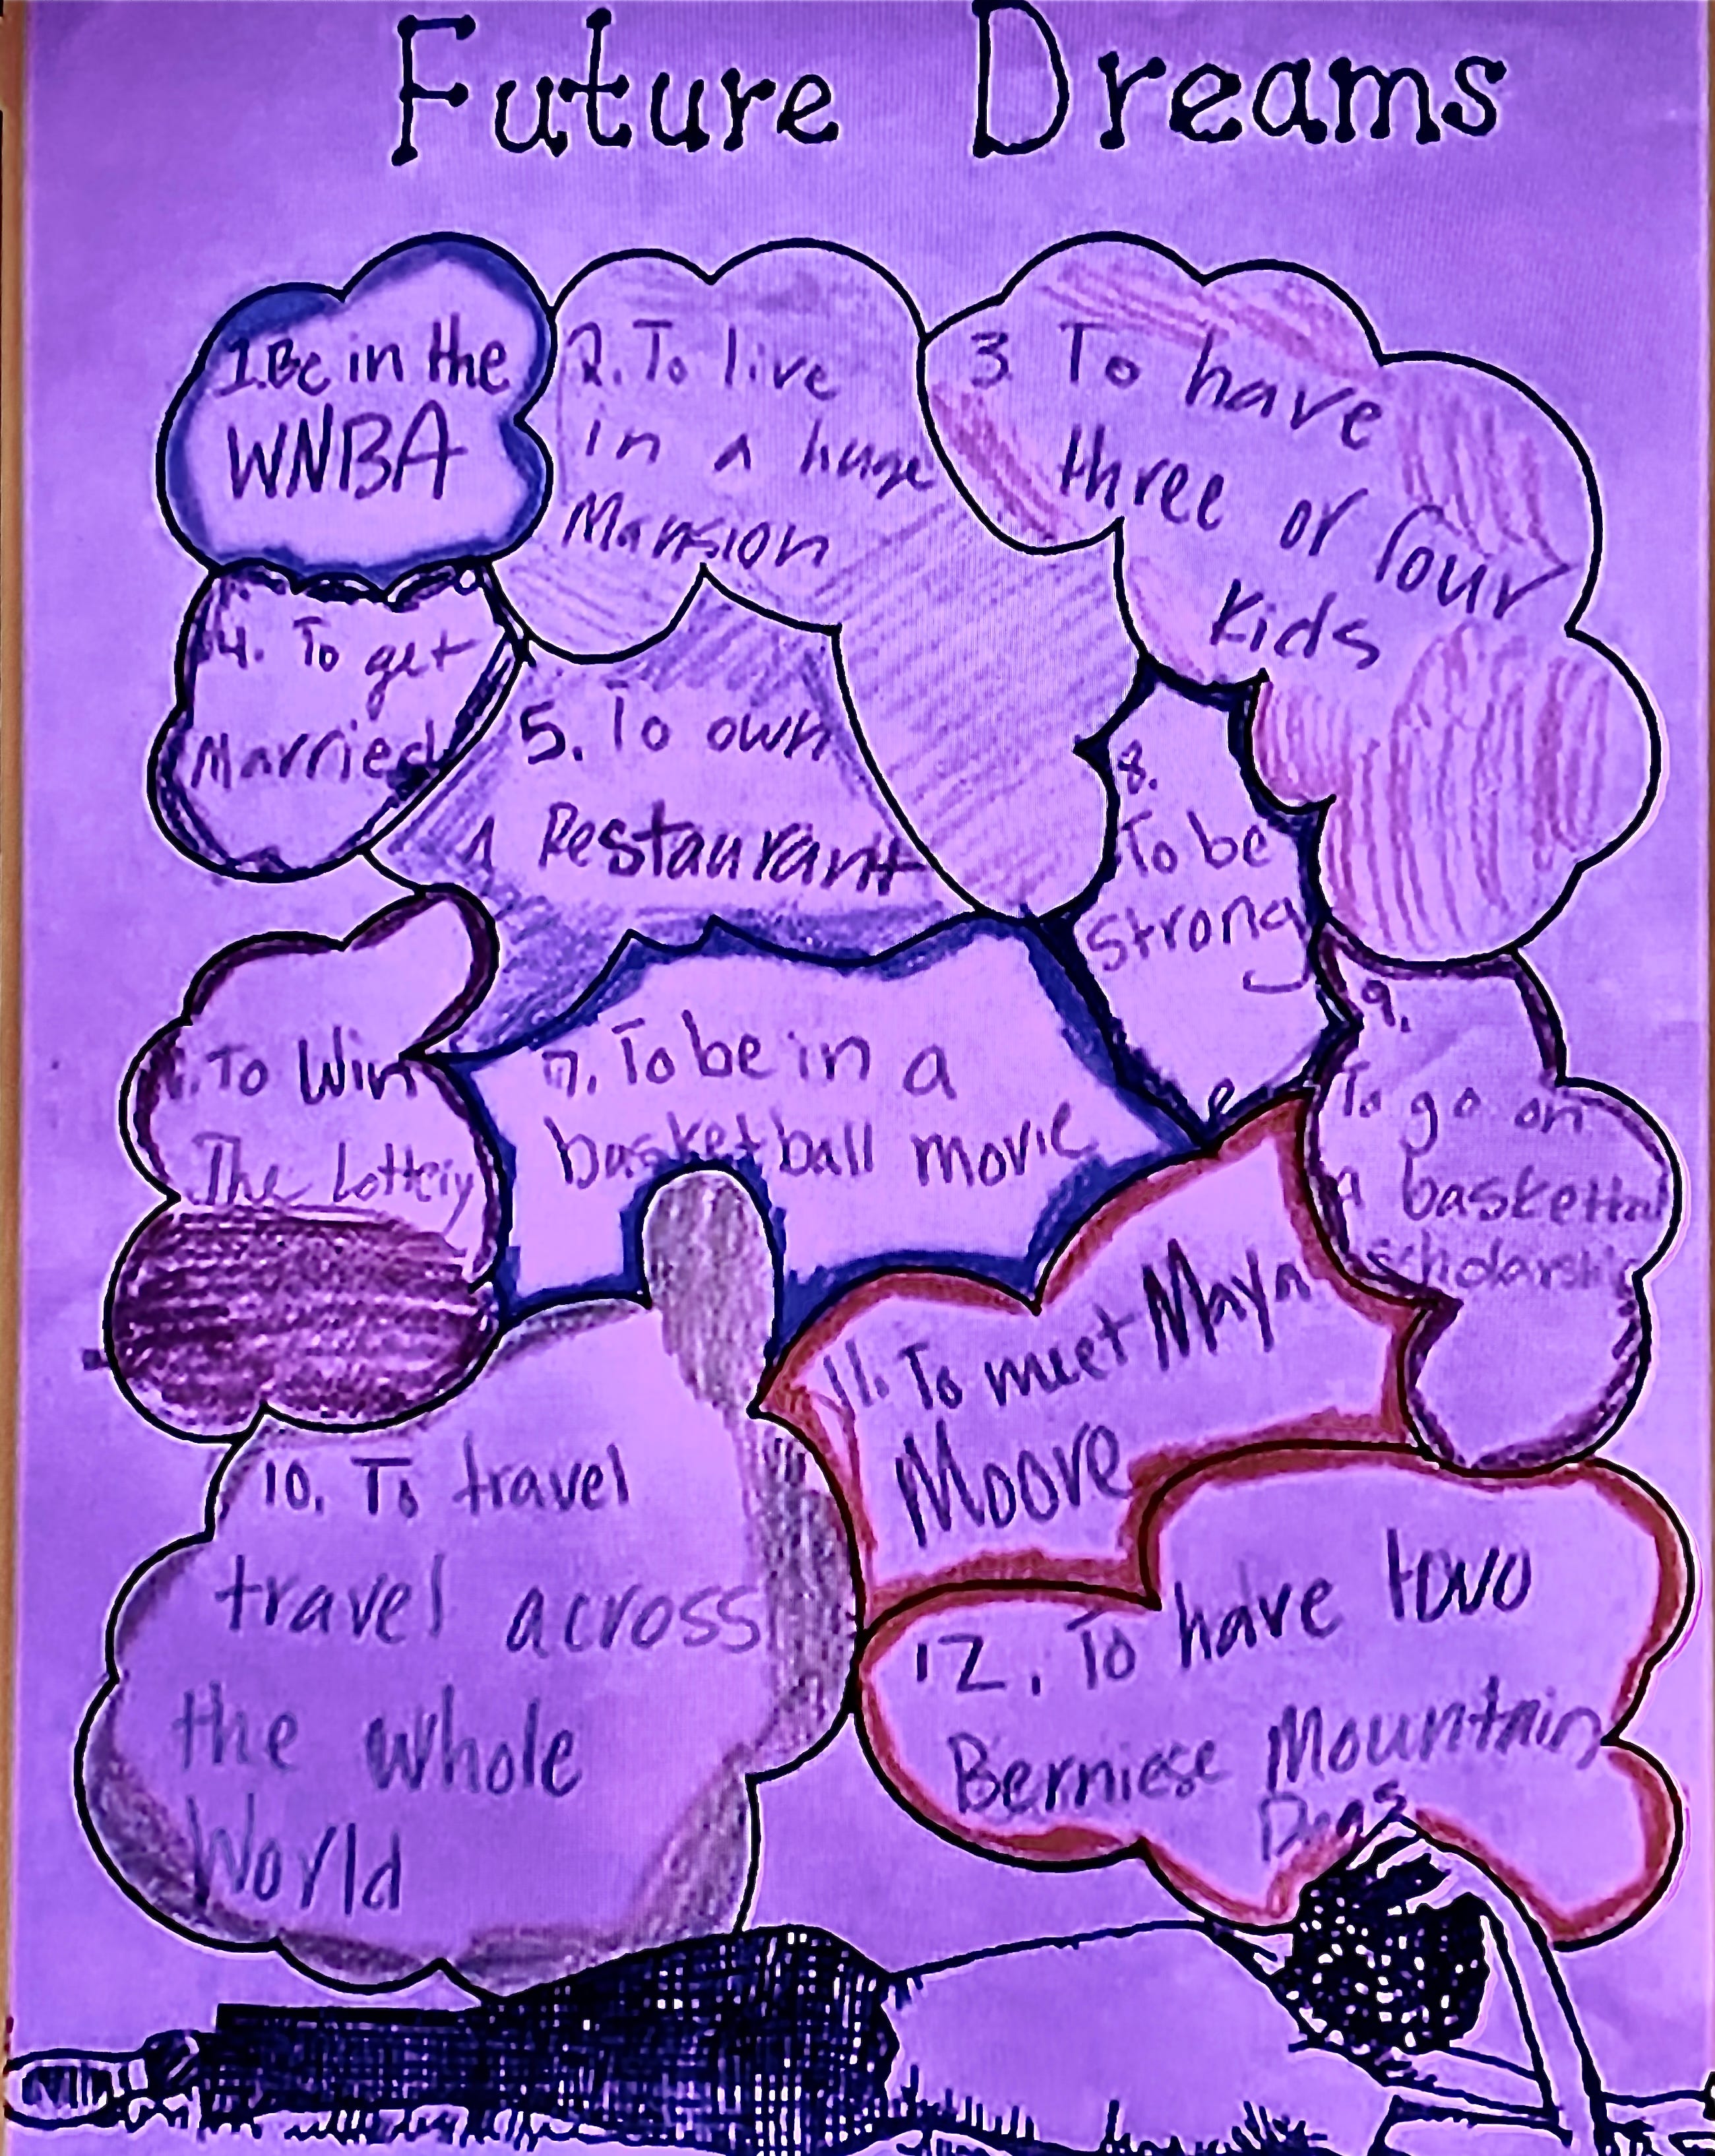 Future Dreams
1. Be in the
WNBA
2. To live
in a huge
Mansion
3 To have
three or four
Kids
4. To get
Married
5. To own
A Restaurant
. To Win
The Lottery
7. To be in a
basketball movie
8.
To be
strong
9.
To go on
A basketball
scholarship
10. To travel
travel across
the whole
World
11. To meet Maya
Moore
12. To have towo
Berniese Mountain
Dogs